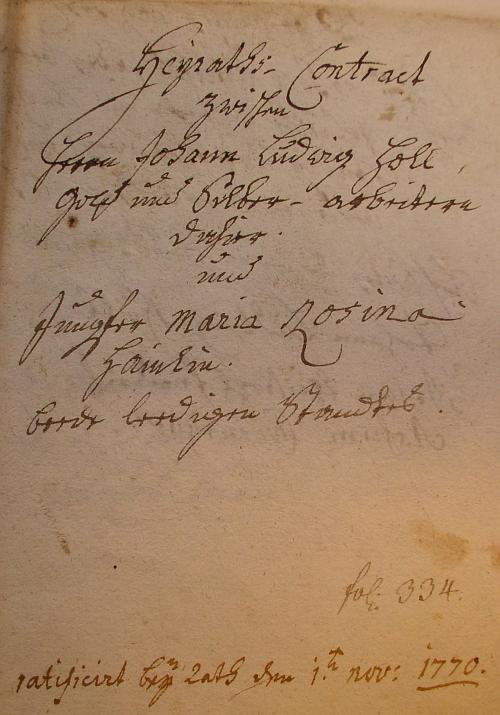 Heyraths- Contract
zwischen
Herrn Johann Ludwig Holl,
Gold und Silber- arbeitern
dahier.
und
Jungfer Maria Rosina
Hainlin.
beede leedigen Standtes.
fol: 334.
ratificirt beym Rath den 1.t nov: 1770.